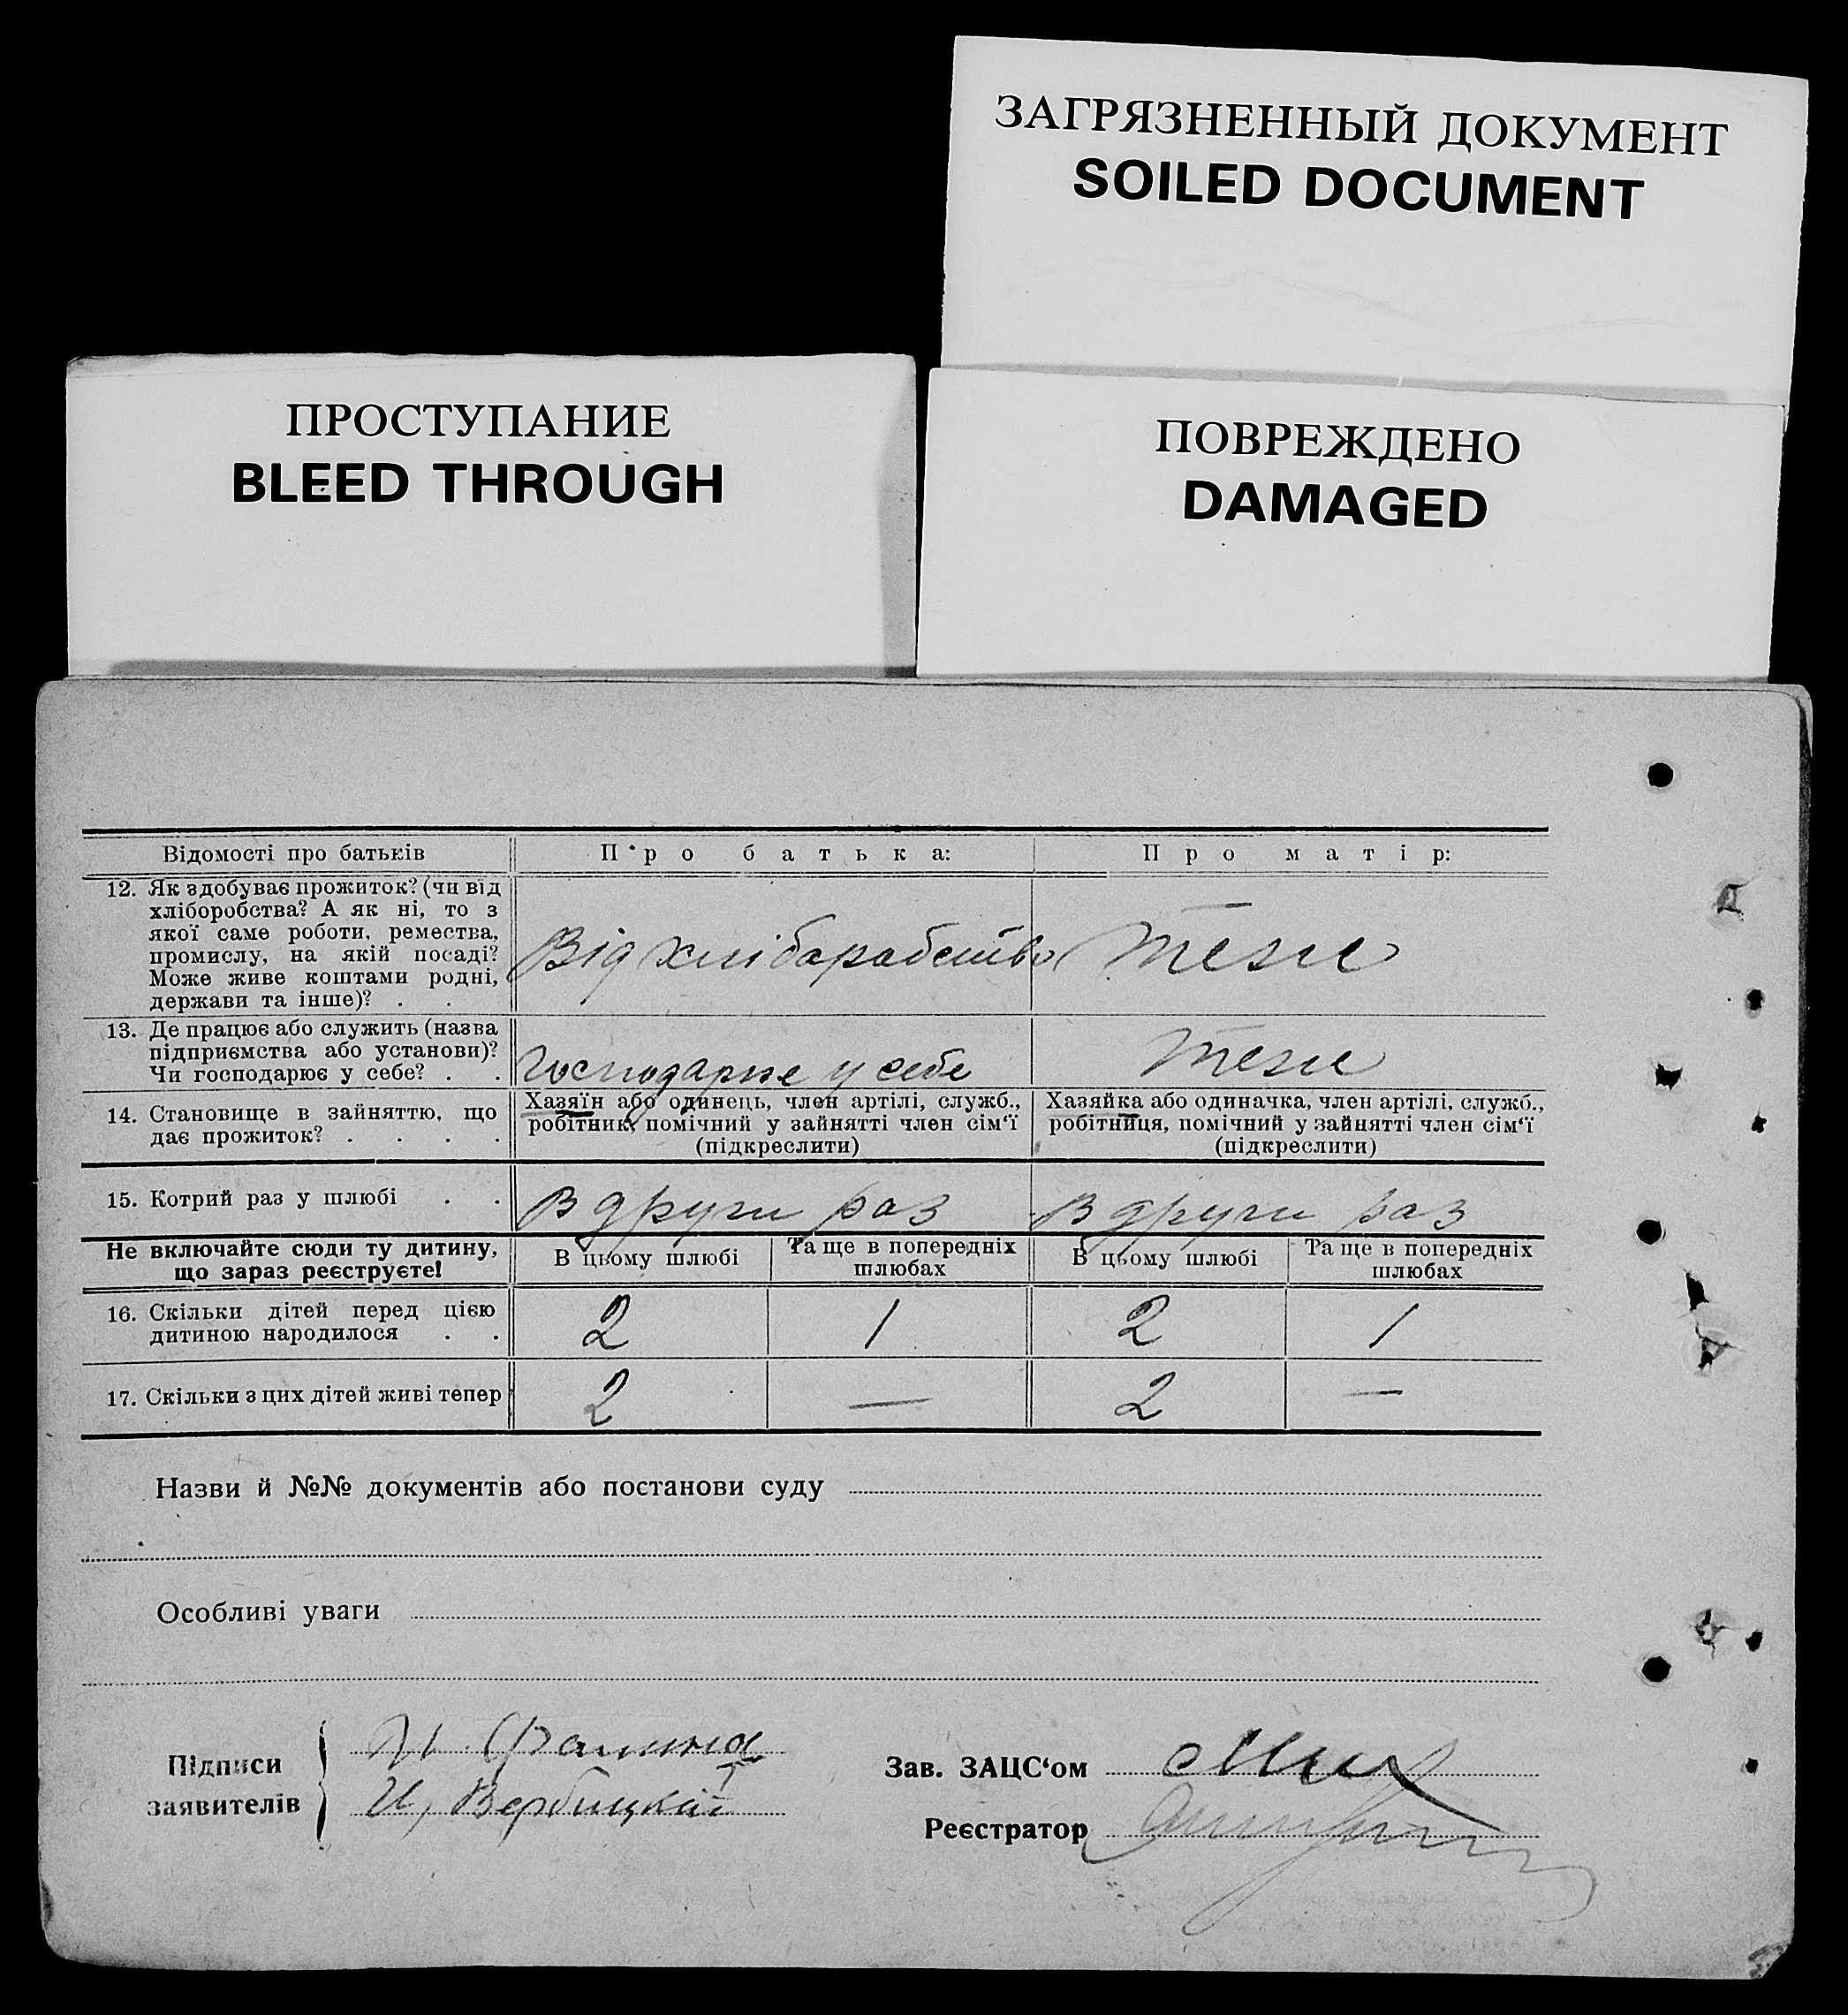 ЗАГРЯЗНЕННЫЙ ДОКУМЕНТ
SOILED DOCUMENT
ПРОСТУПАНИЕ
BLEED THROUGH
ПОВРЕЖДЕНО
DAMAGED
Відомості про батьків
Про батька:
Про матір:
12. Як здобуває прожиток? (чи від
хліборобства? А як ні, то з
якої саме роботи, ремества,
промислу, на якій посаді?
Може живе коштами родні,
держави та інше)? . .
Від хліборобство
Теж
13. Де працює або служить (назва
підприємства або установи)?
Чи господарює у себе? . .
Господарює у себе
Теж
14. Становище в зайняттю, що
дає прожиток? . . . .
Хазяїн або одинець, член артілі, служб.,
робітник, помічний у зайнятті член сім‘ї
(підкреслити)
Хазяйка або одиначка, член артілі, служб.,
робітниця, помічний у зайнятті член сім‘ї
(підкреслити)
15. Котрий раз у шлюбі . .
В други раз
В други раз
Не включайте сюди ту дитину,
що зараз реєструєте!
В цьому шлюбі
Та ще в попередніх
шлюбах
В цьому шлюбі
Та ще в попередніх
шлюбах
16. Скільки дітей перед цією
дитиною народилося . .
2
1
2
1
17. Скільки з цих дітей живі тепер
2
—
2
—
Назви й №№ документів або постанови суду
Особливі уваги
Підписи
заявителів
И, Вербицкая
Зав. ЗАЦС‘ом
Реєстратор